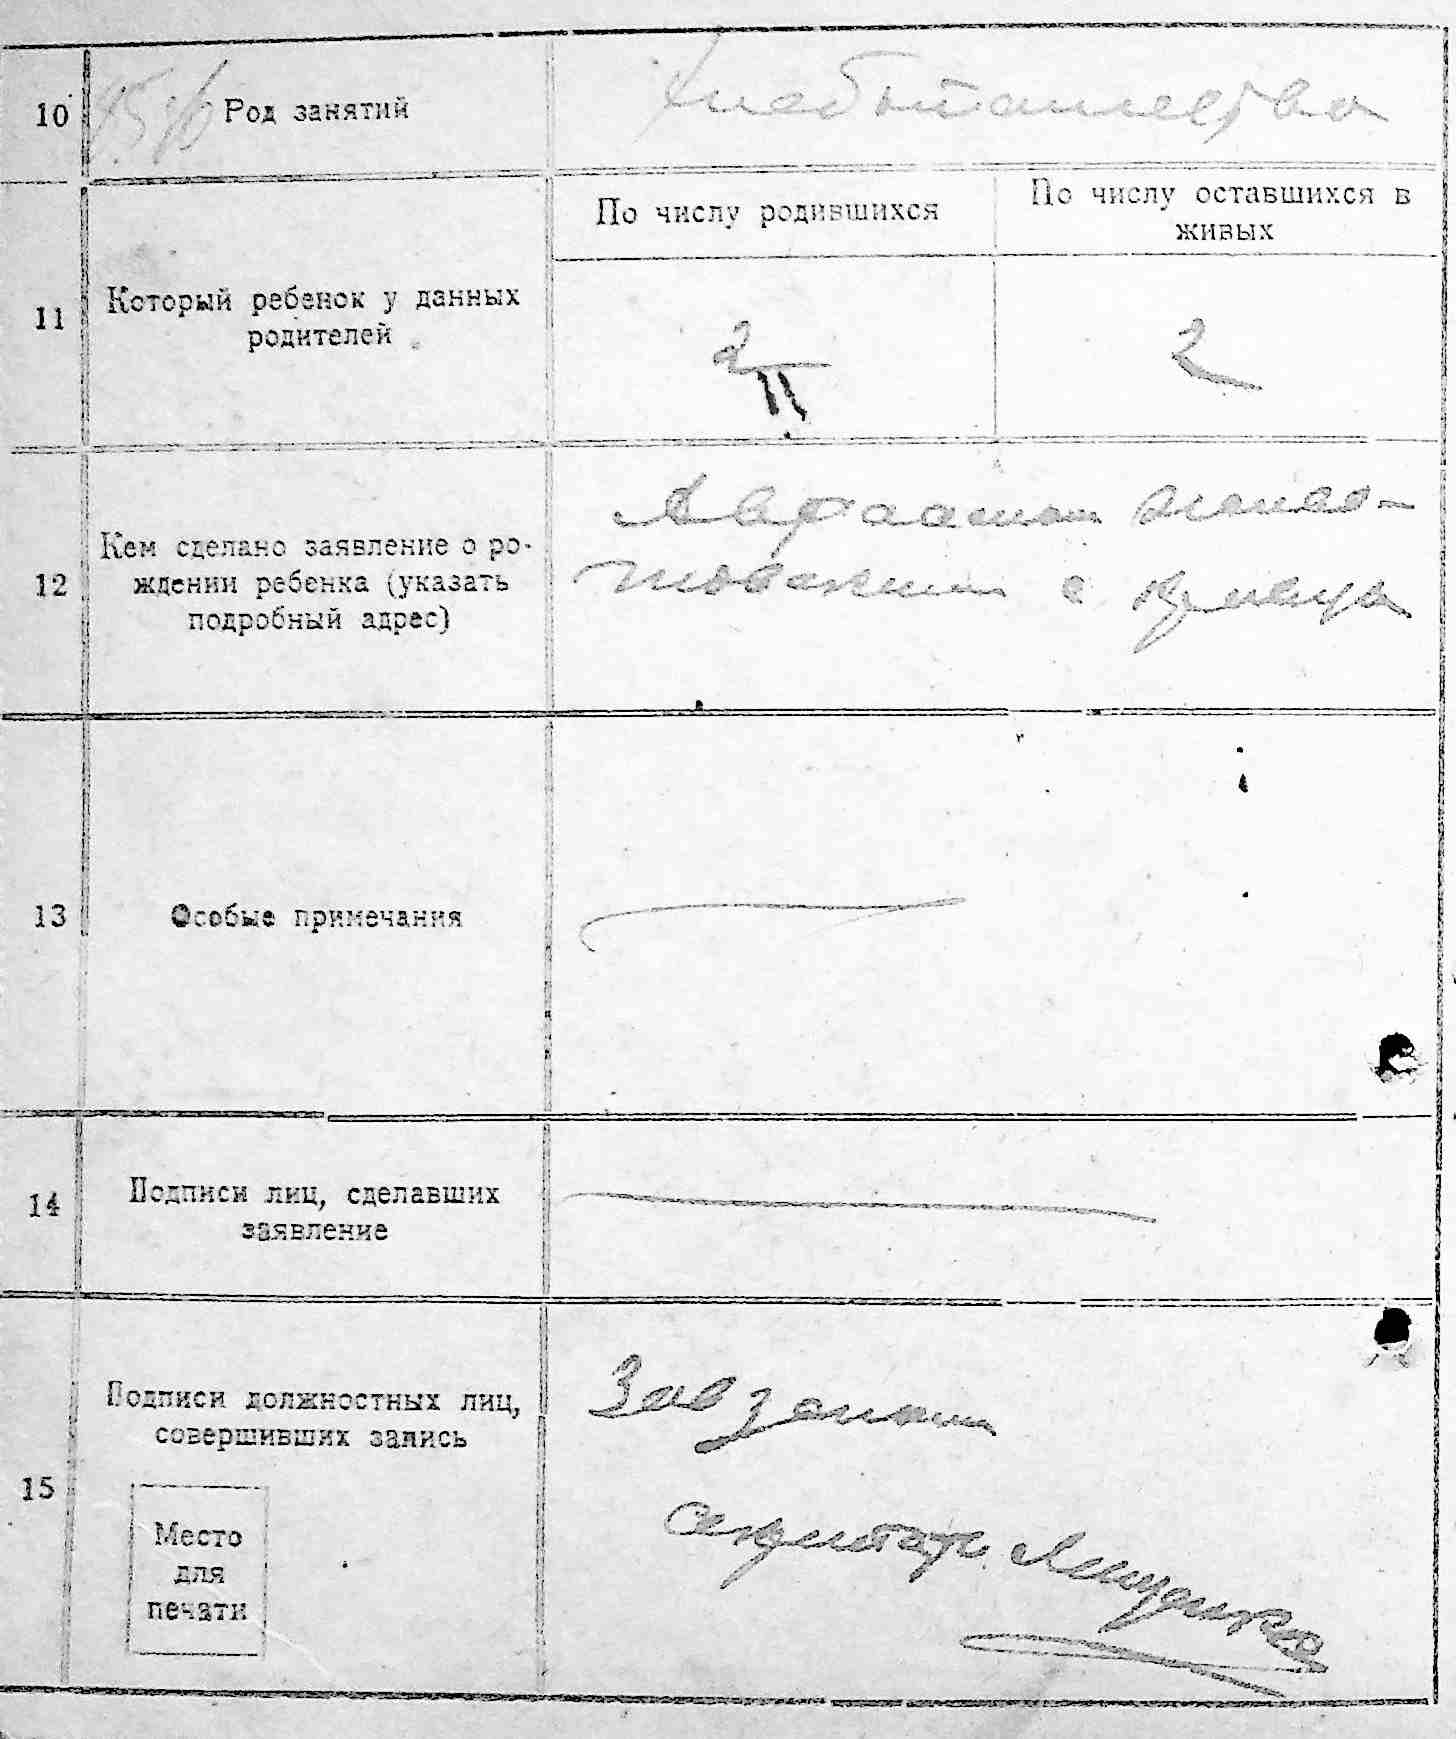 10
Род занятий
Хлебопашество
11
Который ребенок у данных
родителей
По числу родившихся
По числу оставшихся в
живых
2
II
2
12
Кем сделано заявление о ро-
ждении ребенка (указать
подробный адрес)
13
Особые примечания
14
Подписи лиц, сделавших
заявление
15
Подписи должностных лиц,
совершивших запись
Место
для
печати
Зав
Секретарь